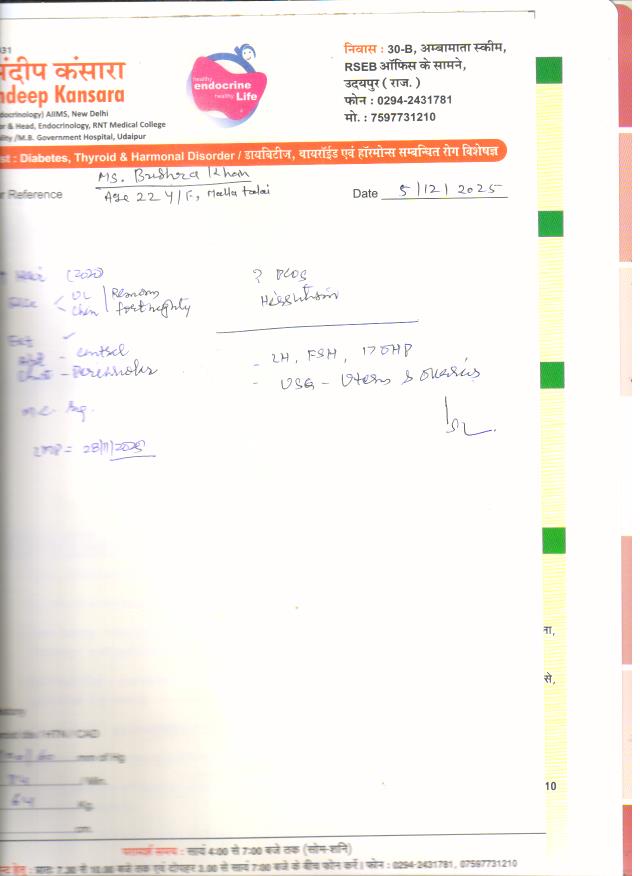 31
निवास : 30-B, अम्बामाता स्कीम,
RSEB ऑफिस के सामने,
उदयपुर ( राज. )
फोन : 0294-2431781
मो. : 7597731210
दीप कंसारा
ndeep Kansara
docrinology) AIIMS, New Delhi
r & Head, Endocrinology, RNT Medical College
lity /M.B. Government Hospital, Udaipur
healthy
endocrine
healthy Life
st : Diabetes, Thyroid & Harmonal Disorder / डायबिटीज, थायरॉईड एवं हॉरमोन्स सम्बन्धित रोग विशेषज्ञ
r Reference
Ms. Bushra Khan
Age 22 Y/F, Malla talai
Date 5/12/2025
? PCOS
Hirsutism
UL
Chin
Removes
fortnightly
- LH, FSH, 17OHP
- USG - Uterus & Ovaries
LMP = 28/11/2025
ना,
से,
/ HTN / CAD
mm of Hg
/Min.
64 Kg.
cm.
10
परामर्श समय : सायं 4:00 से 7:00 बजे तक (सोम-शनि)
हेतु : प्रातः 7.30 से 10.00 बजे तक एवं दोपहर 3.00 से सायं 7:00 बजे के बीच फोन करें । फोन : 0294-2431781, 07597731210